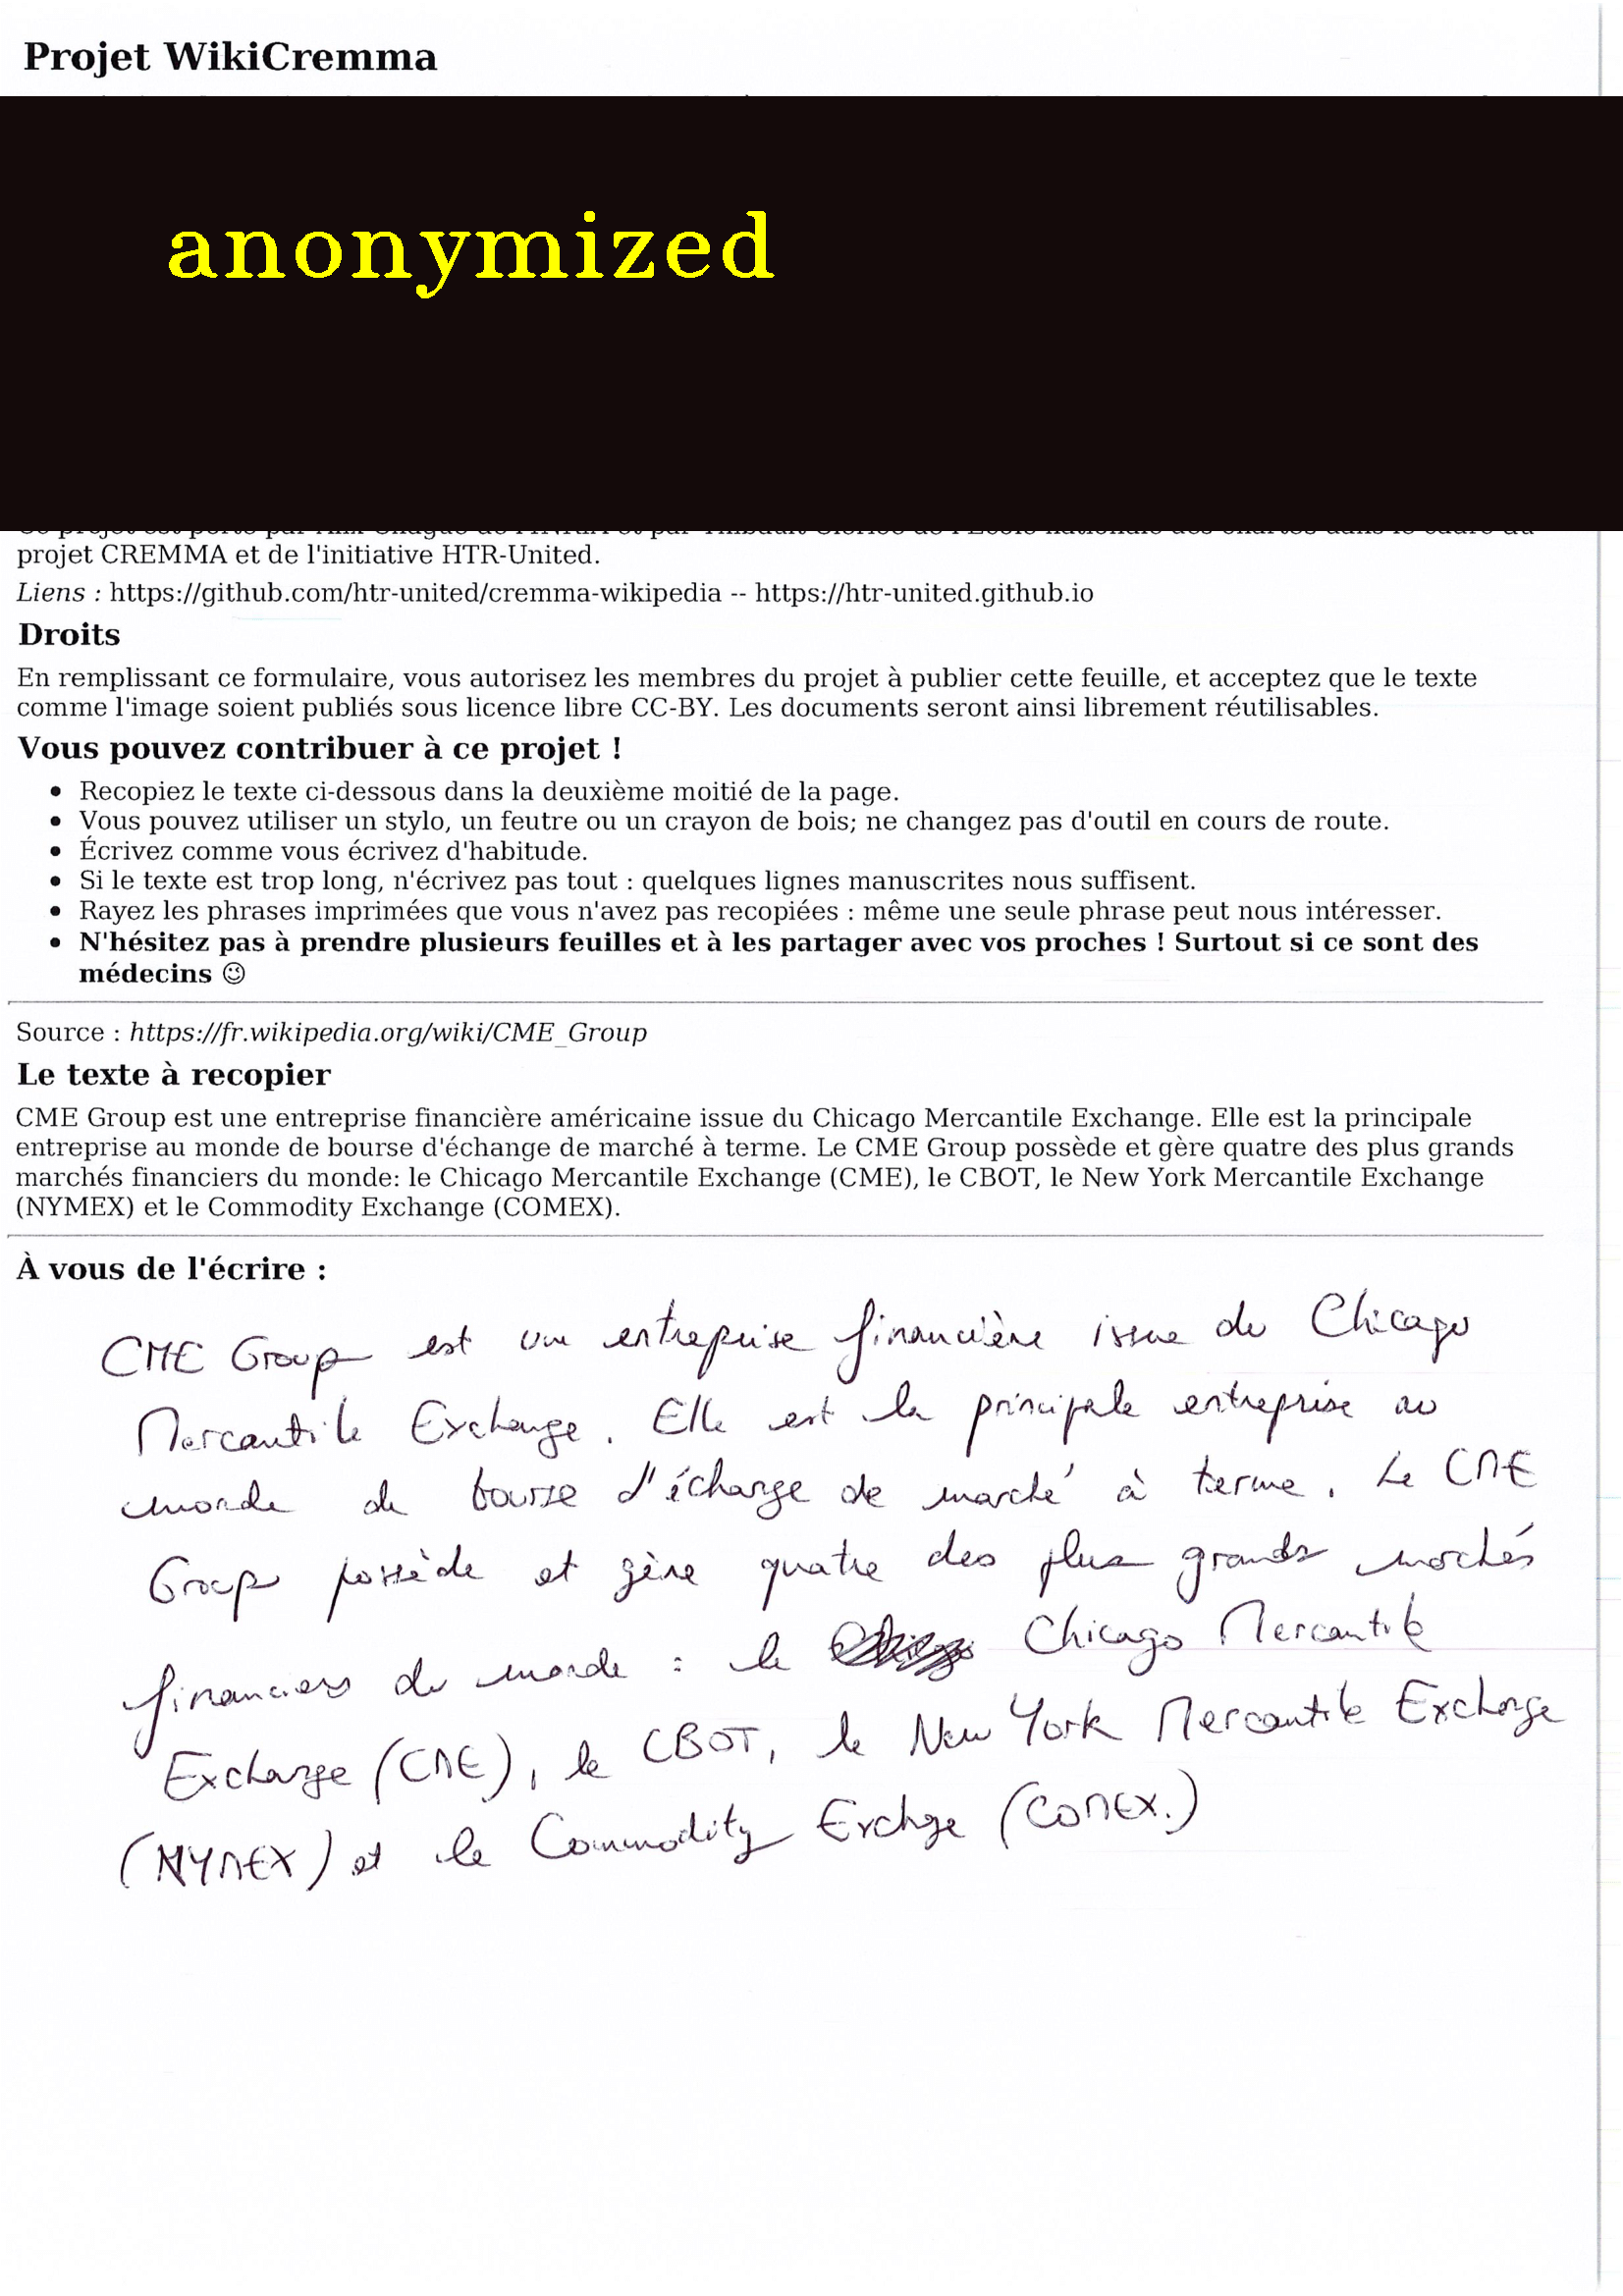 Projet WikiCremma
anonymized
projet CREMMA et de l'initiative HTR-United.
Liens : https://github.com/htr-united/cremma-wikipedia -- https://htr-united.github.io
Droits
En remplissant ce formulaire, vous autorisez les membres du projet à publier cette feuille, et acceptez que le texte
comme l'image soient publiés sous licence libre CC-BY. Les documents seront ainsi librement réutilisables.
Vous pouvez contribuer à ce projet !
• Recopiez le texte ci-dessous dans la deuxième moitié de la page.
• Vous pouvez utiliser un stylo, un feutre ou un crayon de bois; ne changez pas d'outil en cours de route.
• Écrivez comme vous écrivez d'habitude.
• Si le texte est trop long, n'écrivez pas tout : quelques lignes manuscrites nous suffisent.
• Rayez les phrases imprimées que vous n'avez pas recopiées : même une seule phrase peut nous intéresser.
• N'hésitez pas à prendre plusieurs feuilles et à les partager avec vos proches ! Surtout si ce sont des
médecins ☺
Source : https://fr.wikipedia.org/wiki/CME_Group
Le texte à recopier
CME Group est une entreprise financière américaine issue du Chicago Mercantile Exchange. Elle est la principale
entreprise au monde de bourse d'échange de marché à terme. Le CME Group possède et gère quatre des plus grands
marchés financiers du monde: le Chicago Mercantile Exchange (CME), le CBOT, le New York Mercantile Exchange
(NYMEX) et le Commodity Exchange (COMEX).
À vous de l'écrire :
CME Group est une entreprise financière issue du Chicago
Mercantile Exchange. Elle est la principale entreprise au
monde de bourse d'échange de marché à terme. Le CME
Group possède et gère quatre des plus grands marchés
financiers du monde : le Chicago Mercantile
Exchange (CME), le CBOT, le New York Mercantile Exchange
(NYMEX) et le Commodity Exchge (COMEX.)